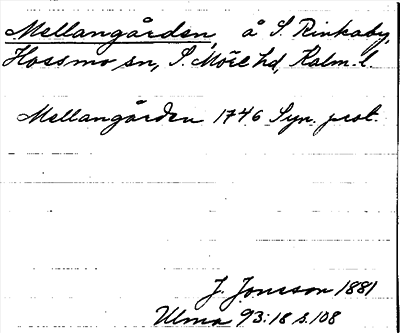 Mellangården, å S. Rinkaby,
Hossmo sn, S. Möre hd, Kalm. l.
Mellangården 1746 Syn. prot.
J. Jonsson 1881
Ulma 93:18 s. 108